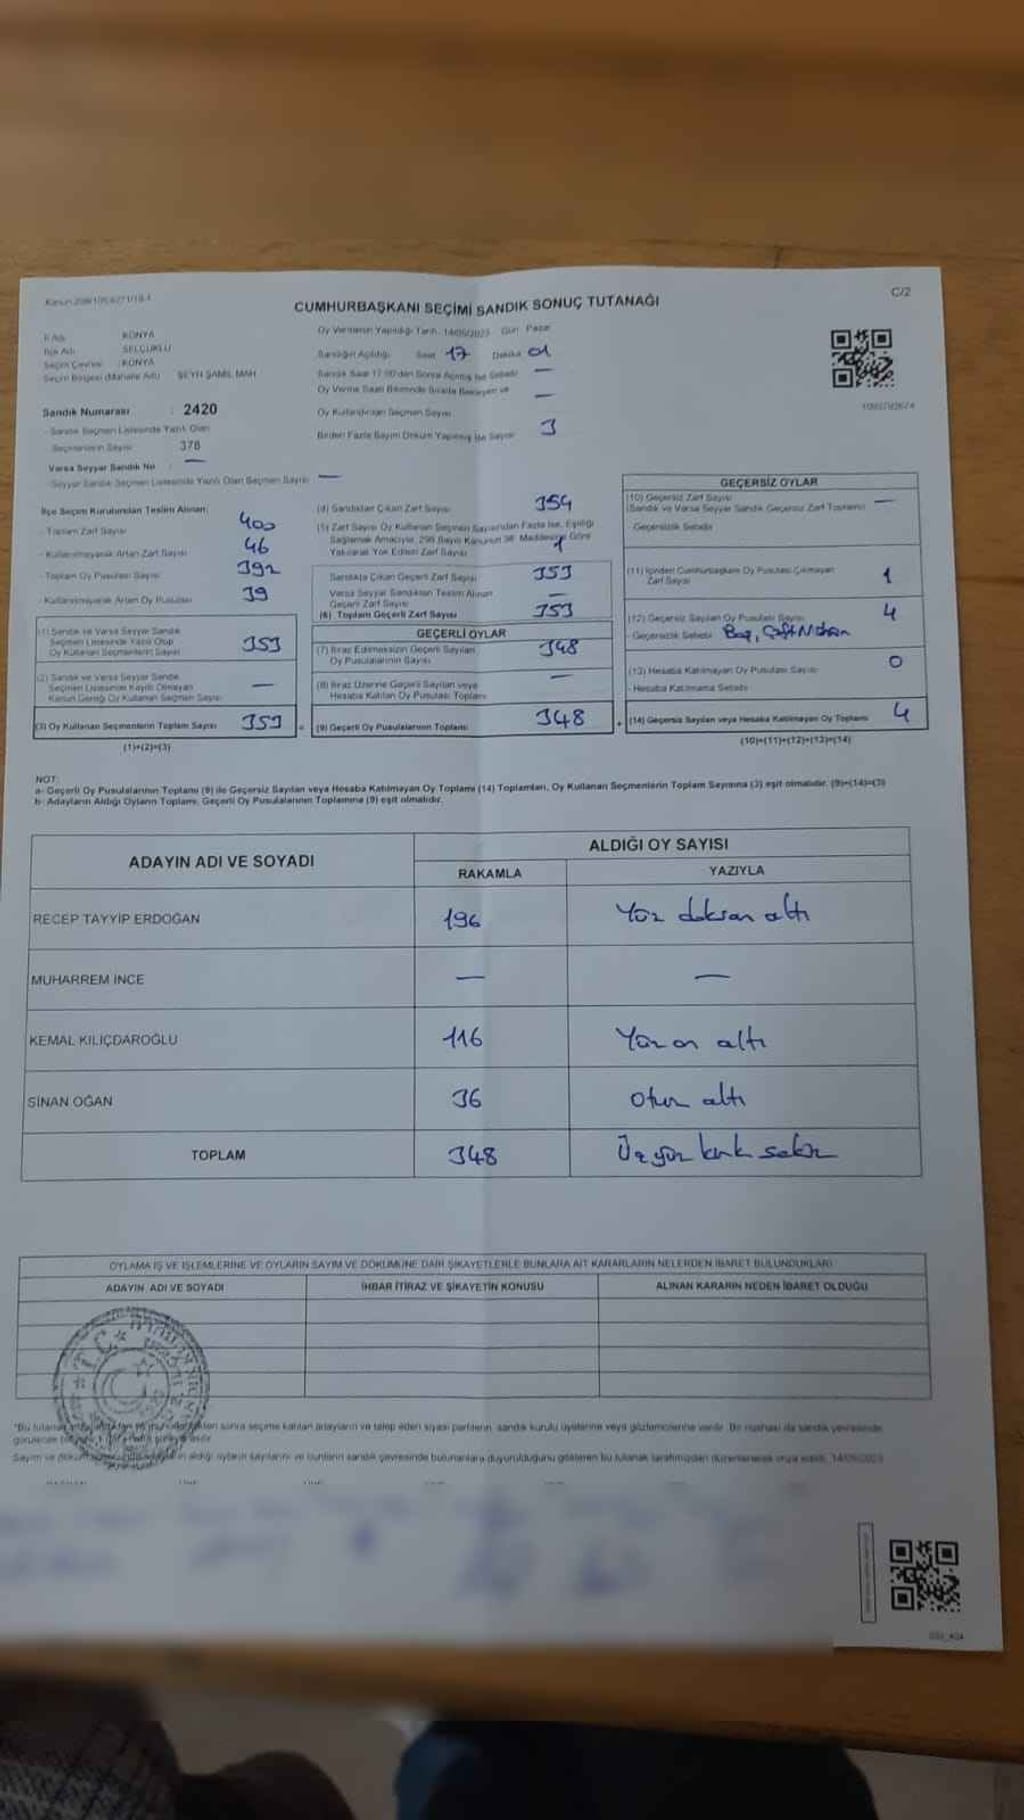 C/2
CUMHURBAŞKANI SEÇİMİ SANDIK SONUÇ TUTANAĞI
İl Adı : KONYA
İlçe Adı : SELÇUKLU
Seçim Çevresi : KONYA
Seçim Bölgesi (Mahalle Adı) : ŞEYH ŞAMİL MAH
Sandık Numarası : 2420
- Sandık Seçmen Listesinde Yazılı Olan
Seçmenlerin Sayısı : 378
Varsa Seyyar Sandık No : —
- Seyyar Sandık Seçmen Listesinde Yazılı Olan Seçmen Sayısı —
Oy Vermenin Yapıldığı Tarih: 14/05/2023 Gün: Pazar
Sandığın Açıldığı Saat 17 Dakika 01
Sandık Saat 17.00'den Sonra Açılmış İse Sebebi —
Oy Verme Saati Bitiminde Sırada Bekleyen ve —
Oy Kullandırılan Seçmen Sayısı
Birden Fazla Sayım Döküm Yapılmış İse Sayısı 3
İlçe Seçim Kurulundan Teslim Alınan;
- Toplam Zarf Sayısı 400
- Kullanılmayarak Artan Zarf Sayısı 46
- Toplam Oy Pusulası Sayısı 392
- Kullanılmayarak Artan Oy Pusulası 39
(1) Sandık ve Varsa Seyyar Sandık
Seçmen Listesinde Yazılı Olup
Oy Kullanan Seçmenlerin Sayısı 353
(2) Sandık ve Varsa Seyyar Sandık
Seçmen Listesinde Kayıtlı Olmayan
Kanun Gereği Oy Kullanan Seçmen Sayısı —
(3) Oy Kullanan Seçmenlerin Toplam Sayısı 353
(1)+(2)=(3)
(4) Sandıktan Çıkan Zarf Sayısı 354
(5) Zarf Sayısı Oy Kullanan Seçmen Sayısından Fazla İse, Eşitliği
Sağlamak Amacıyla, 298 Sayılı Kanunun 98. Maddesine Göre
Yakılarak Yok Edilen Zarf Sayısı 1
Sandıkta Çıkan Geçerli Zarf Sayısı 353
Varsa Seyyar Sandıktan Teslim Alınan
Geçerli Zarf Sayısı —
(6) Toplam Geçerli Zarf Sayısı 353
GEÇERLİ OYLAR
(7) İtiraz Edilmeksizin Geçerli Sayılan
Oy Pusulalarının Sayısı 348
(8) İtiraz Üzerine Geçerli Sayılan veya
Hesaba Katılan Oy Pusulası Toplamı —
(9) Geçerli Oy Pusulalarının Toplamı 348
GEÇERSİZ OYLAR
(10) Geçersiz Zarf Sayısı
(Sandık ve Varsa Seyyar Sandık Geçersiz Zarf Toplamı) —
- Geçersizlik Sebebi
(11) İçinden Cumhurbaşkanı Oy Pusulası Çıkmayan
Zarf Sayısı 1
(12) Geçersiz Sayılan Oy Pusulası Sayısı 4
- Geçersizlik Sebebi Boş, Çift
(13) Hesaba Katılmayan Oy Pusulası Sayısı 0
- Hesaba Katılmama Sebebi
(14) Geçersiz Sayılan veya Hesaba Katılmayan Oy Toplamı 4
(10)+(11)+(12)+(13)=(14)
NOT:
a- Geçerli Oy Pusulalarının Toplamı (9) ile Geçersiz Sayılan veya Hesaba Katılmayan Oy Toplamı (14) Toplamları, Oy Kullanan Seçmenlerin Toplam Sayısına (3) eşit olmalıdır. (9)+(14)=(3)
b- Adayların Aldığı Oyların Toplamı, Geçerli Oy Pusulalarının Toplamına (9) eşit olmalıdır.
ADAYIN ADI VE SOYADI
ALDIĞI OY SAYISI
RAKAMLA YAZIYLA
RECEP TAYYİP ERDOĞAN 196 Yüz doksan altı
MUHARREM İNCE — —
KEMAL KILIÇDAROĞLU 116 Yüz on altı
SİNAN OĞAN 36 Otuz altı
TOPLAM 348 Üçyüz kırk sekiz
OYLAMA İŞ VE İŞLEMLERİNE VE OYLARIN SAYIM VE DÖKÜMÜNE DAİR ŞİKAYETLERLE BUNLARA AİT KARARLARIN NELERDEN İBARET BULUNDUKLARI
ADAYIN ADI VE SOYADI İHBAR İTİRAZ VE ŞİKAYETİN KONUSU ALINAN KARARIN NEDEN İBARET OLDUĞU
T.C.
sonra seçime katılan adayların ve talep eden siyasi partilerin sandık kurulu üyelerine veya gözlemcilerine verilir. Bir nüshası da sandık çevresinde
aldığı oyların sayılarını ve bunların sandık çevresinde bulunanlara duyurulduğunu gösteren bu tutanak tarafımızdan düzenlenerek imza edildi. 14/05/2023